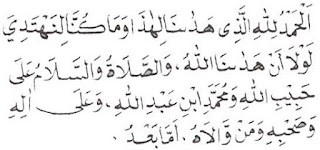 اَلْحَمْدُ لِلّٰهِ الَّذِى هَدٰىنَا لِهٰذَا وَمَا كُنَّا لِنَهْتَدِيَ
لَوْلَا اَنْ هَدٰىنَا اللّٰهُ، وَالصَّلَاةُ وَالسَّلَامُ عَلَى
حَبِيْبِ اللّٰهِ وَمُحَمَّدِ ابْنِ عَبْدِ اللّٰهِ، وَعَلَى اٰلِهِ
وَصَحْبِهِ وَمَنْ وَّالَاهُ. اَمَّا بَعْدُ.